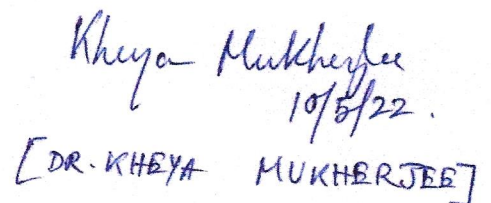 Kheya Mukherjee
10/5/22.
[DR. KHEYA MUKHERJEE]